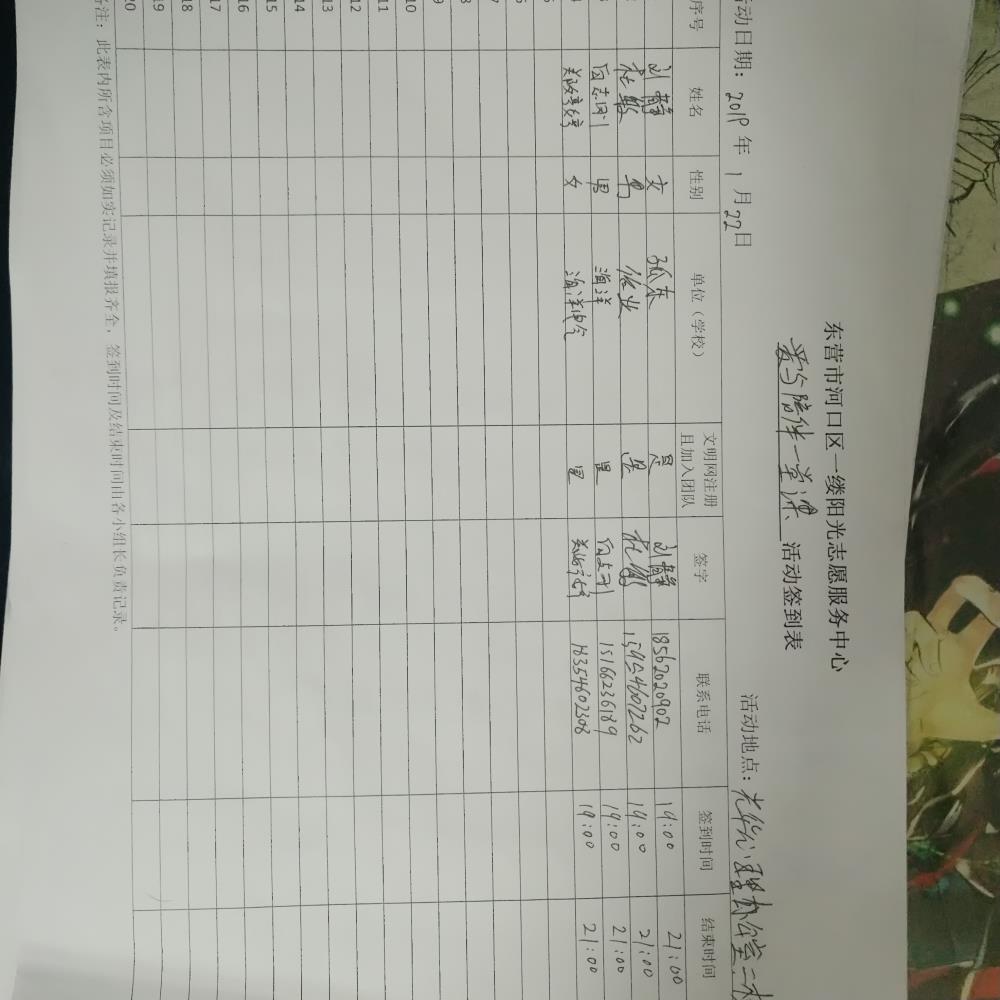 东营市河口区一缕阳光志愿服务中心
爱与陪伴一堂课 活动签到表
活动日期：2019年1月22日 活动地点：光华心理办公室二楼
序号 姓名 性别 单位（学校） 文明网注册且加入团队 签字 联系电话 签到时间 结束时间
刘静 女 孤东 是 刘静 18562020902 19:00 21:00
杜敏 男 修业 是 杜敏 19:00 21:00
男 海洋 是 15166236189 19:00 21:00
女 海洋电气 是 18354602308 19:00 21:00
5
6
7
8
9
10
11
12
13
14
15
16
17
18
19
20
备注：此表内所含项目必须如实记录并填报齐全，签到时间及结束时间由各小组长负责记录。